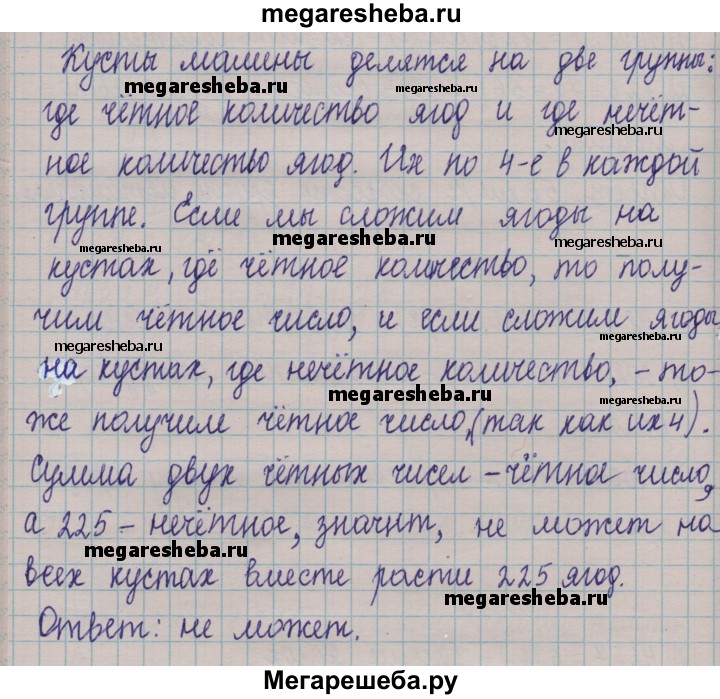 megaresheba.ru
Кусты малины делятся на две группы:
megaresheba.ru megaresheba.ru
где чётное количество ягод и где нечёт-
megaresheba.ru
ное количество ягод. Их по 4-е в каждой
группе. Если мы сложим ягоды на
megaresheba.ru megaresheba.ru megaresheba.ru
кустах, где чётное количество, то полу-
чим чётное число, и если сложим ягоды
megaresheba.ru megaresheba.ru
на кустах, где нечётное количество, - то-
megaresheba.ru megaresheba.ru
же получим чётное число, (так как их 4).
Сумма двух чётных чисел - чётное число,
а 225 - нечётное, значит, не может на
megaresheba.ru megaresheba.ru
всех кустах вместе расти 225 ягод.
megaresheba.ru
Ответ: не может.
Мегарешеба.ру